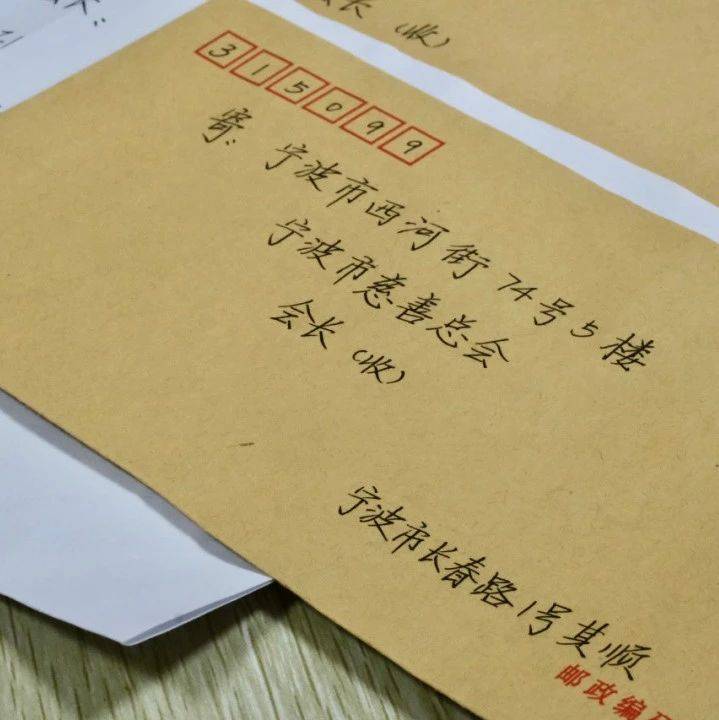 会长（收）
315099
寄：宁波市西河街74号5楼
宁波市慈善总会
会长（收）
宁波市长春路1号其顺
邮政编